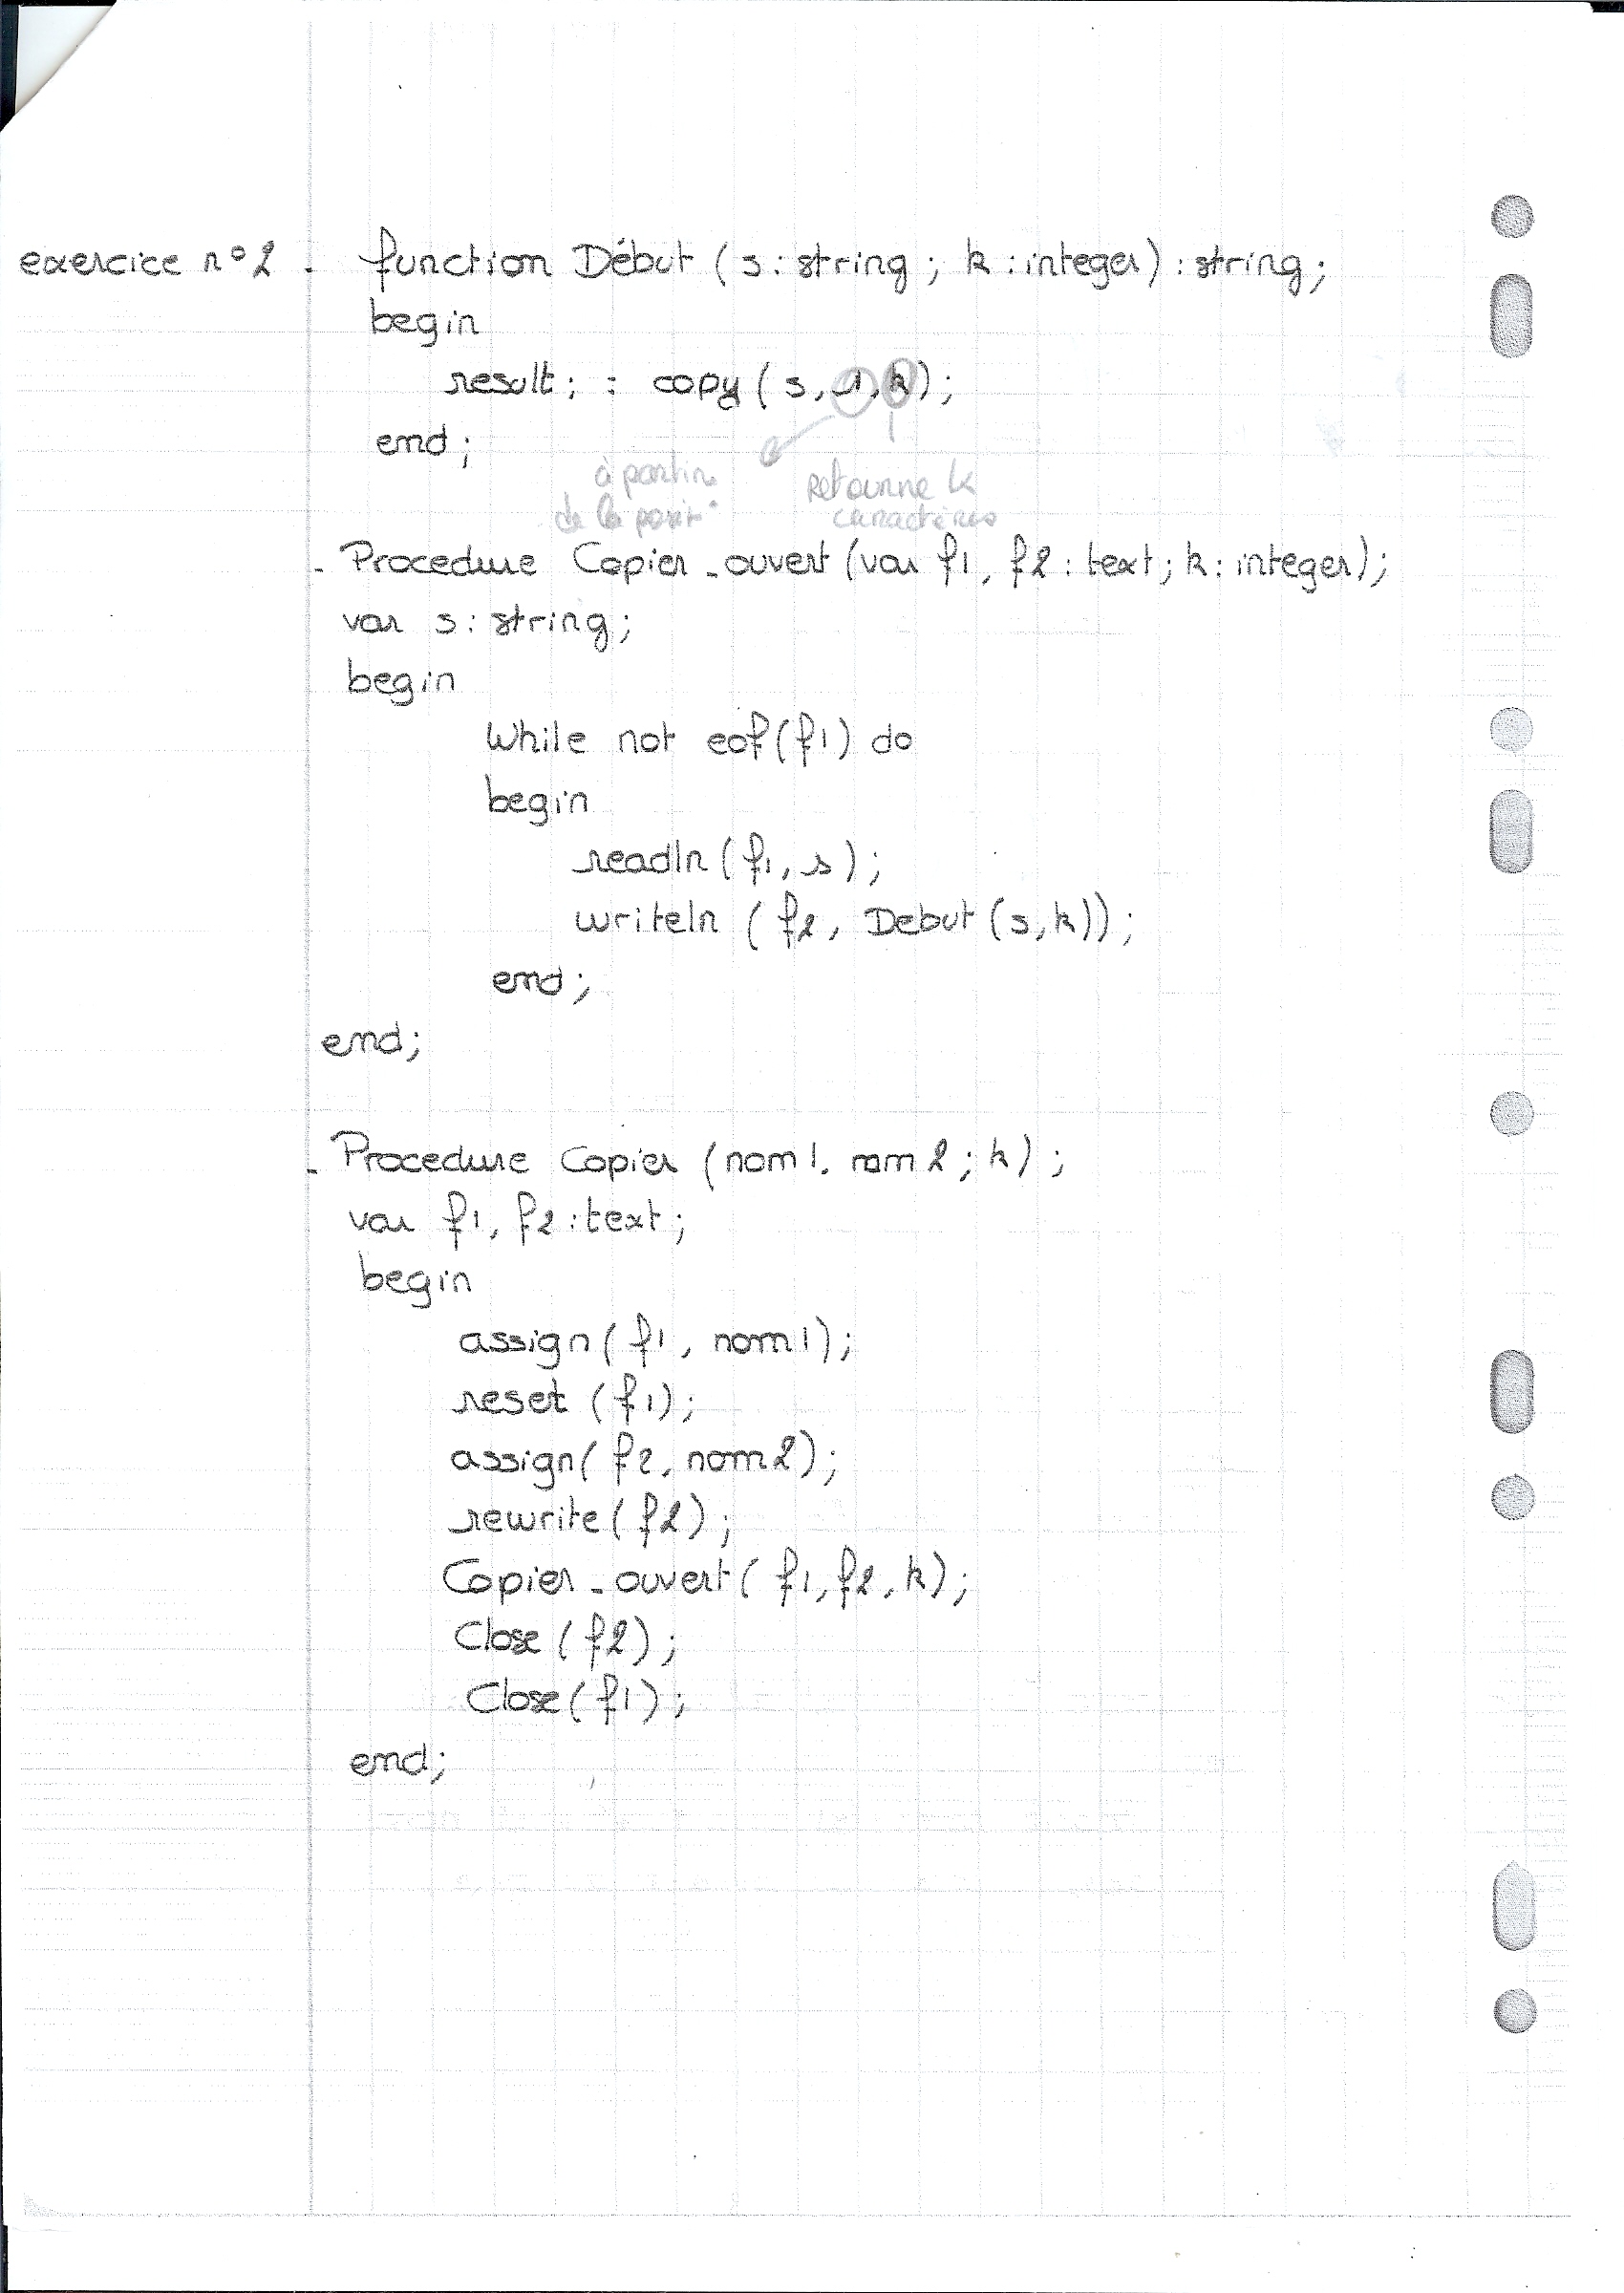 exercice n°2 - function Début (s : string ; k : integer) : string ;
begin
result ; : copy ( s, 1, k ) ;
end ;
à partir retourne k
de la posit° caractères
- Procedure Copier_ouvert (var f1, f2 : text ; k : integer) ;
var s : string ;
begin
While not eof (f1) do
begin
readln ( f1, s ) ;
writeln ( f2, Debut (s, k)) ;
end ;
end ;
- Procedure Copier (nom1, nom2 ; k) ;
var f1, f2 : text ;
begin
assign ( f1, nom1) ;
reset (f1) ;
assign ( f2, nom2) ;
rewrite ( f2) ;
Copier_ouvert ( f1, f2, k) ;
Close ( f2) ;
Close ( f1) ;
end ;